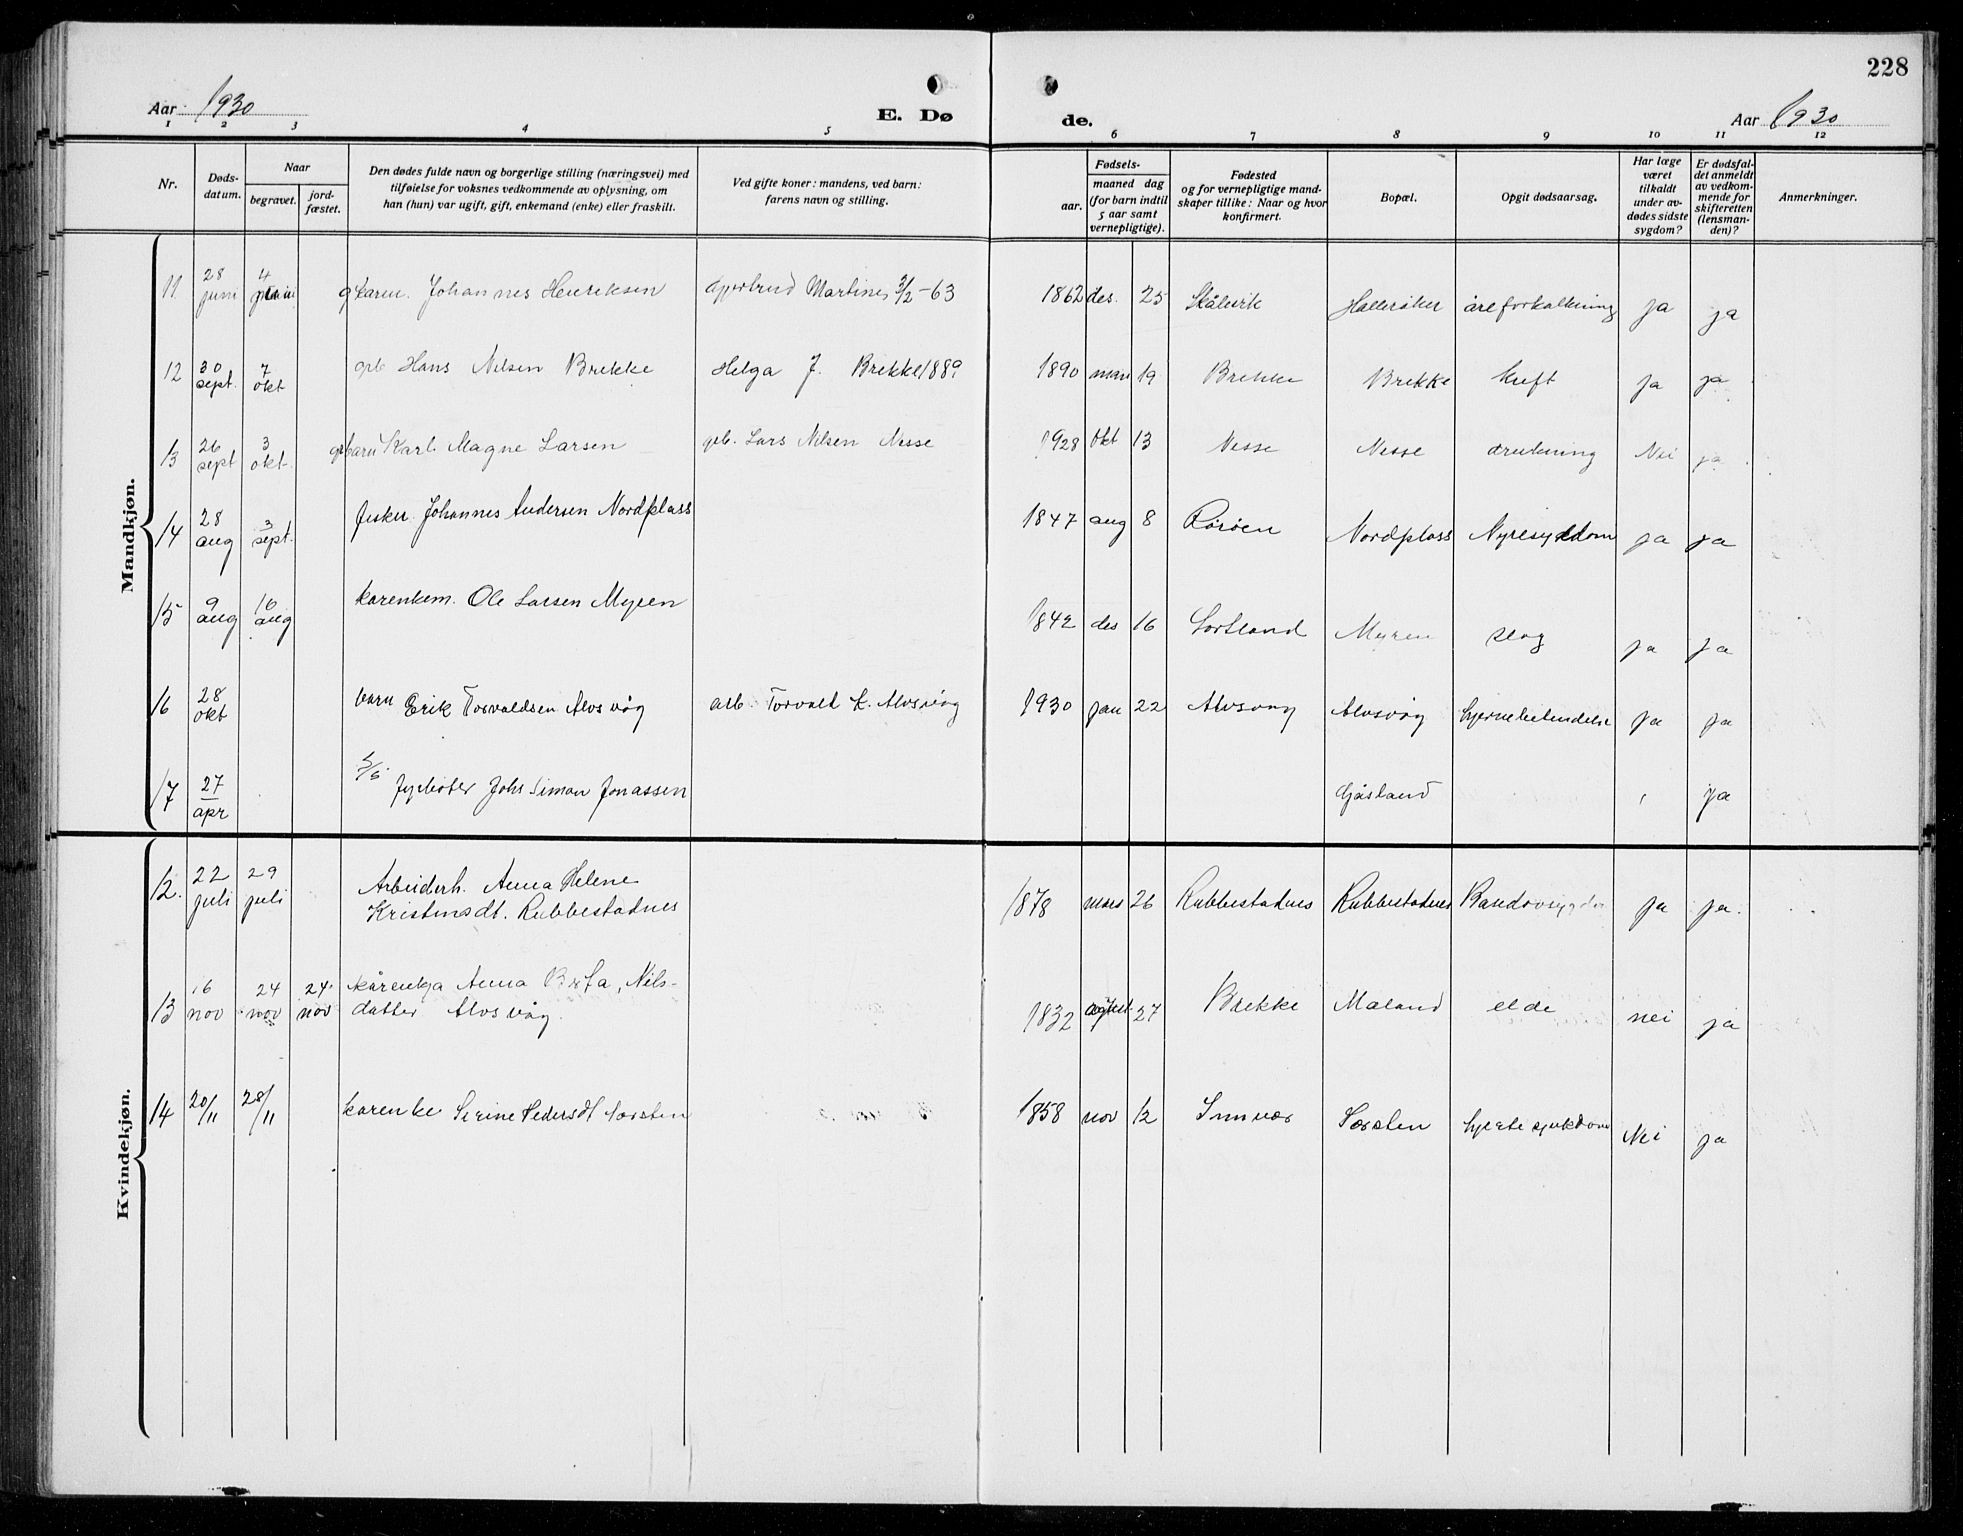 228
Aar 1930
E. Dø
de.
Aar 1930
1 2 3 4 5 6 7 8 9 10 11 12
Nr.
Døds-
datum.
Naar
begravet.
jord-
fæstet.
Den dødes fulde navn og borgerlige stilling (næringsvei) med
tilføielse for voksnes vedkommende av oplysning, om
han (hun) var ugift, gift, enkemand (enke) eller fraskilt.
Ved gifte koner: mandens, ved barn:
farens navn og stilling.
Fødsels-
aar.
maaned dag
(for barn indtil
5 aar samt
vernepligtige).
Fødested
og for vernepligtige mand-
skaper tillike: Naar og hvor
konfirmert.
Bopæl.
Opgit dødsaarsag.
Har læge
været
tilkaldt
under av-
dødes sidste
sygdom?
Er dødsfal-
det anmeldt
av vedkom-
mende for
skifteretten
(lensman-
den)?
Anmerkninger.
Mandkjøn.
11 28 juni 4 Johannes Henriksen Martines 3/2-63 1862 des. 25 Skålevik åreforkalkning ja ja
12 30 sept. 7 okt Hans Nilsen Brekke Helga J. Brekke 1889 1890 19 Brekke Brekke ja ja
13 26 sept 3 okt. Karl Magne Larsen Lars Nilsen Nesse 1928 okt 13 Nesse Nesse drukning Nei ja
14 28 aug 3 sept. fisker Johannes Andersen Nordplass 1847 aug 8 Rørøen Nordplass Nyresygdom ja ja
15 9 aug 16 aug kårenkem. Ole Larsen Myren 1842 des 16 Sortland Myren slag ja ja
16 28 okt barn Erik Torvaldsen Alvsvåg arb. Torvald K. Alvsvåg 1930 jan 22 Alvsvåg Alvsvåg hjernebetendelse ja ja
17 27 apr Johs Simon Jonassen Gåsland ja
Kvindekjøn.
12. 22 juli 29 juli Arbeiderh. Anna Helene
Kristensdt. Rubbestadnes 1878 mars 26 Rubbestadnes Rubbestadnes ja ja.
13 16 nov 24 nov 24 nov kårenkja Anna Brita, Nils-
datter Alvsvåg. 1832 27 Brekke Mæland elde nei ja
14 20/11 28/11 kårenke Serine Pedersdt Sørsten 1858 nov 12 Innvær Sørsten hjertesjukdom Nei ja